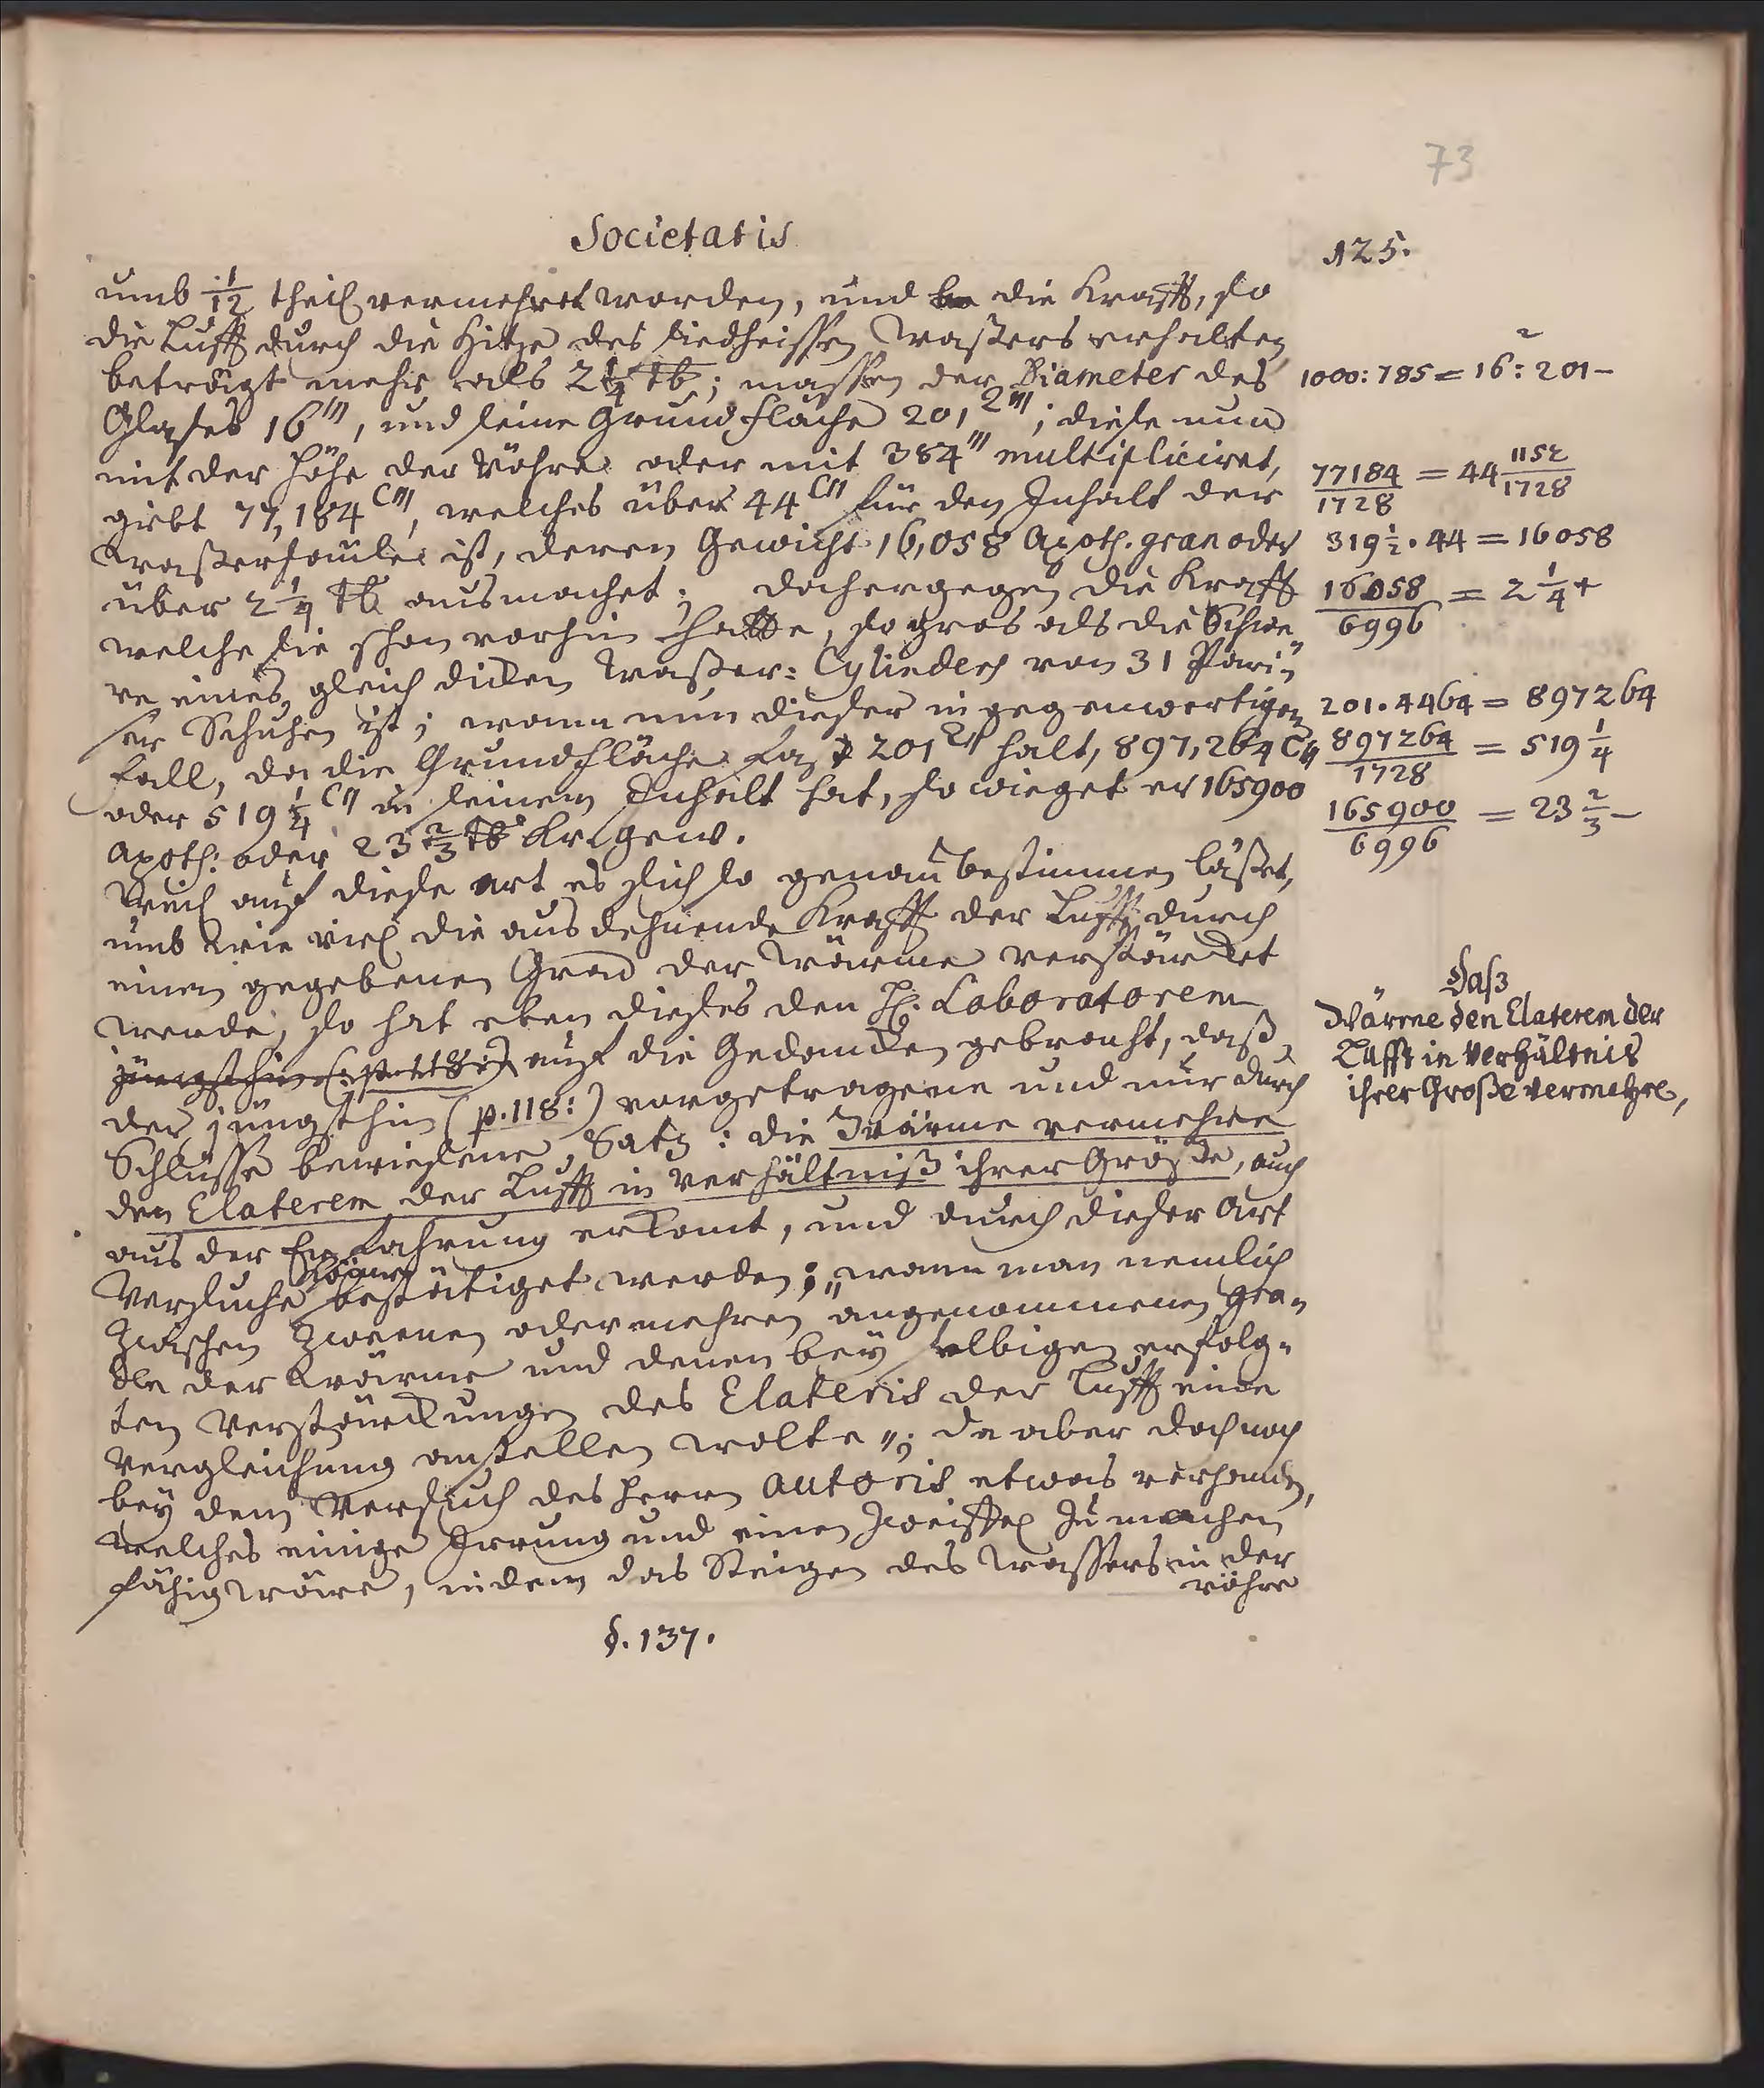 73
Societatis
125.
umb 1/12 theil vermehret worden, und die Krafft, so
die Lufft durch die Hitze des siedheissen Waßers erhalten
beträgt mehr als 2 1/4 ℔; massen der Diameter des
Glases 16''', und seine Grundfläche 201 2'''; diese nun
mit der Höhe der Röhre oder mit 384''' multipliciret,
giebt 77,184 C''', welches über 44 C'' für den Inhalt der
Waßersäule ist, deren Gewicht 16,058 Apoth. gran oder
über 2 1/4 ℔ ausmachet; dahergegen die Krafft
welche sie schon vorhin hatte, so gros als die Schwe„
re eines gleich dicken Waßer: Cylinders von 31 Pari„
ser Schuhen ist; wann nun dieser in gegenwertigen
Fall, da die Grundfläche fast 201 2''' halt, 897,264 C'''
oder 519 1/4 C'' in seinem Inhalt hat, so wieget er 165900
Apoth: oder 23 2/3 ℔ Kr. gew.
Weil auf diese art es sich so genau bestimmen läßet,
umb wie viel die ausdehnende Krafft der Lufft durch
einen gegebenen Grad der Wärme verstärcket
werde, so hat eben dieses den H. Laboratorem
jüngsthin (: p. 118 :) auf die Gedancken gebracht, daß
der jüngsthin (p. 118:) vorgetragene und nur durch
Schlüsse bewiesene Satz: die Wärme vermehre
den Elaterem der Lufft in Verhältniß ihrer Größe, auch
aus der Erfahrung erkant, und durch dieser Art
Versuche könne bestätiget werden; „wann man nemlich
Zwischen zweenen oder mehren angenommenen Gra„
den der Wärme und denen bey selbigen erfolg„
ten Verstärckungen des Elateris der Lufft eine
Vergleichung anstellen wolte„; da aber doch noch
bey dem Versuch des Herrn Autoris etwas verhanden,
welches einige Irrung und einen Zweiffel zu machen
fähig wäre, indem das Steigen des Wassers in der
röhre
§. 137.
1000 : 785 = 16² : 201 –
77184/1728 = 44 1152/1728
319 1/2 . 44 = 16058
16058/6996 = 2 1/4 +
201 . 4464 = 897264
897264/1728 = 519 1/4
165900/6996 = 23 2/3 –
Daß
Wärme den Elaterem der
Lufft in Verhältnis
ihrer Große vermehre,